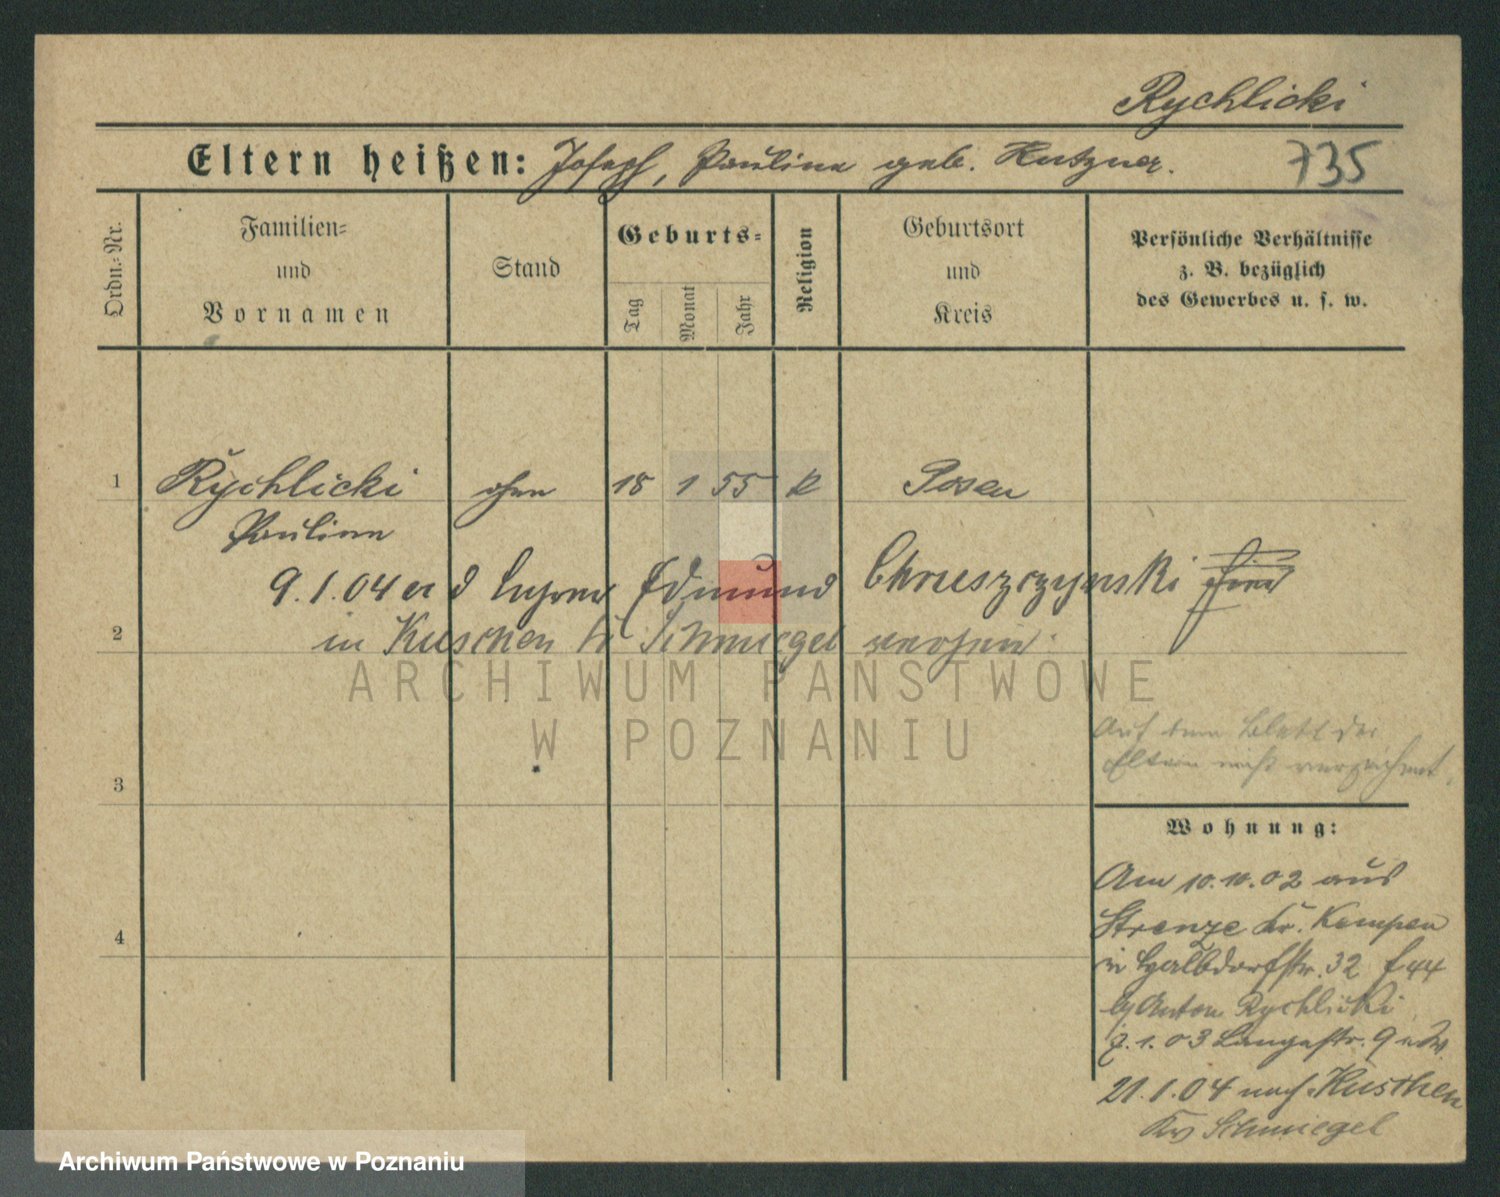 Rychlicki
Eltern heißen: Joseph, Pauline geb. Hutzner.
735
Ordn.-Nr.
Familien-
und
Vornamen
Stand
Geburts-
Tag
Monat
Jahr
Religion
Geburtsort
und
Kreis
Persönliche Verhältnisse
z. B. bezüglich
des Gewerbes u. s. w.
1 Rychlicki ohne 18 1 55 k Posen
Pauline
9.1.04 d Edmund Chruszczynski
2 in Kuschen Kr Schmiegel
ARCHIWUM PAŃSTWOWE
W POZNANIU
Auf dem Blatt der
Eltern nicht verzeichnet.
3
Wohnung:
4
Am 10.10.02 aus
Strenze Kr. Kempen
in Halbdorfstr. 32
by Anton Rychlicki
7.1.03 Langestr. 9
21.1.04 nach Kuschen
Krs Schmiegel
Archiwum Państwowe w Poznaniu